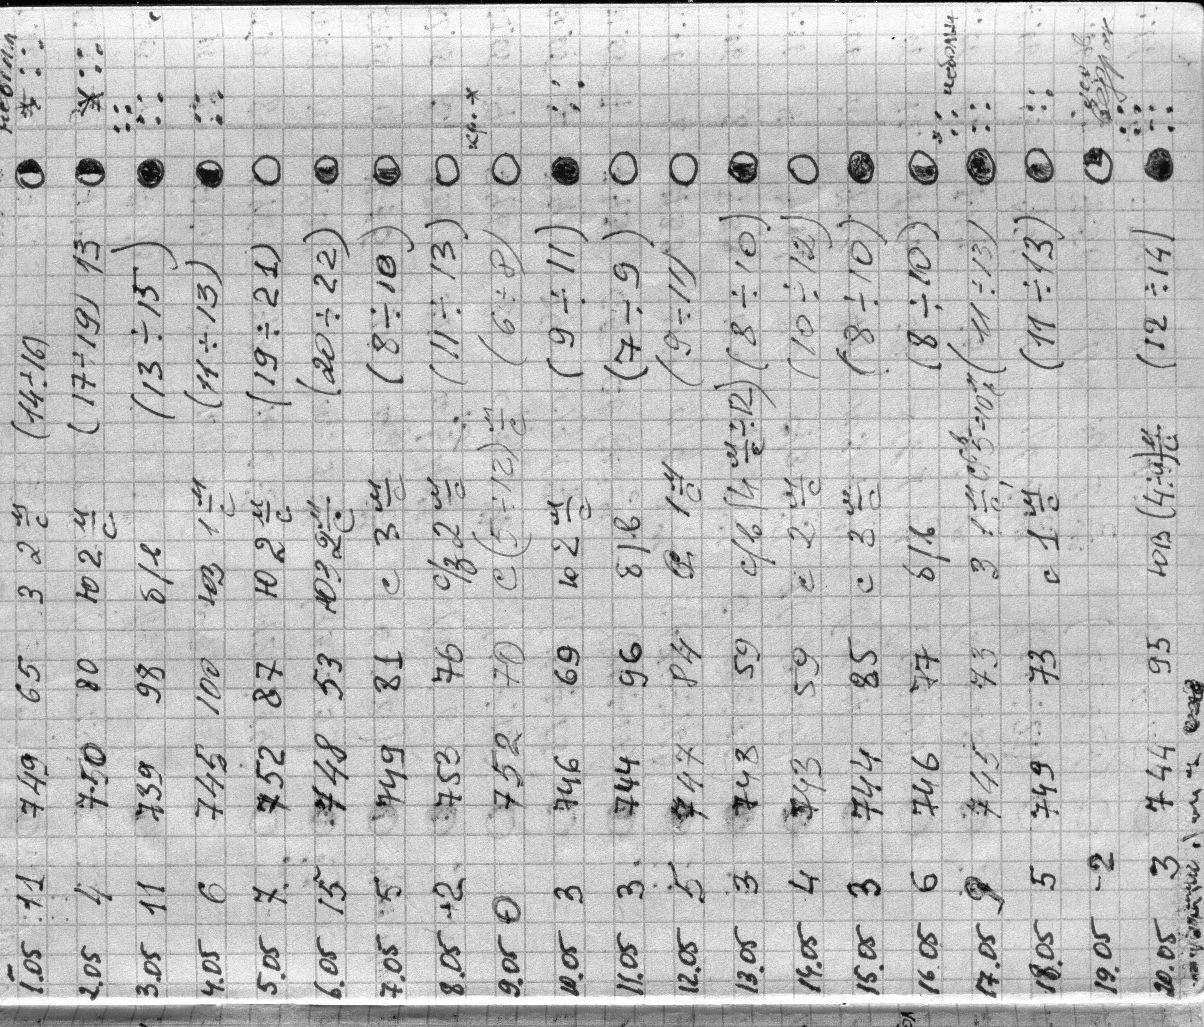 1.05 11 749 65 З 2 м/с (14÷16)
2.05 4 750 80 Ю 2 м/с (17÷19) 13
3.05 11 739 98 б/в (13÷15)
4.05 6 745 100 ЮЗ 1 м/с (11÷13)
5.05 7 752 87 Ю 2 м/с (19÷21)
6.05 15 748 53 ЮЗ 2 м/с (20÷22)
7.05 5 749 81 С 3 м/с (8÷10)
8.05 +2 753 76 С/З 2 м/с (11÷13)
9.05 0 752 70 С (5÷12) м/с (6÷8)
10.05 3 746 69 Ю 2 м/с (9÷11)
11.05 3 744 96 б/в (7÷9)
12.05 5 747 84 1 м/с (9÷11)
13.05 3 743 59 С/В (4 м/с ÷12) (8÷10)
14.05 4 743 59 С 2 м/с (10÷12)
15.05 3 744 85 С 3 м/с (8÷10)
16.05 6 746 77 б/в (8÷10)
17.05 745 73 З 1 м/с (11÷13)
18.05 5 749 73 С 1 м/с (11÷13)
19.05 -2
20.05 3 744 95 ЮВ (4÷9) м/с (12÷14)